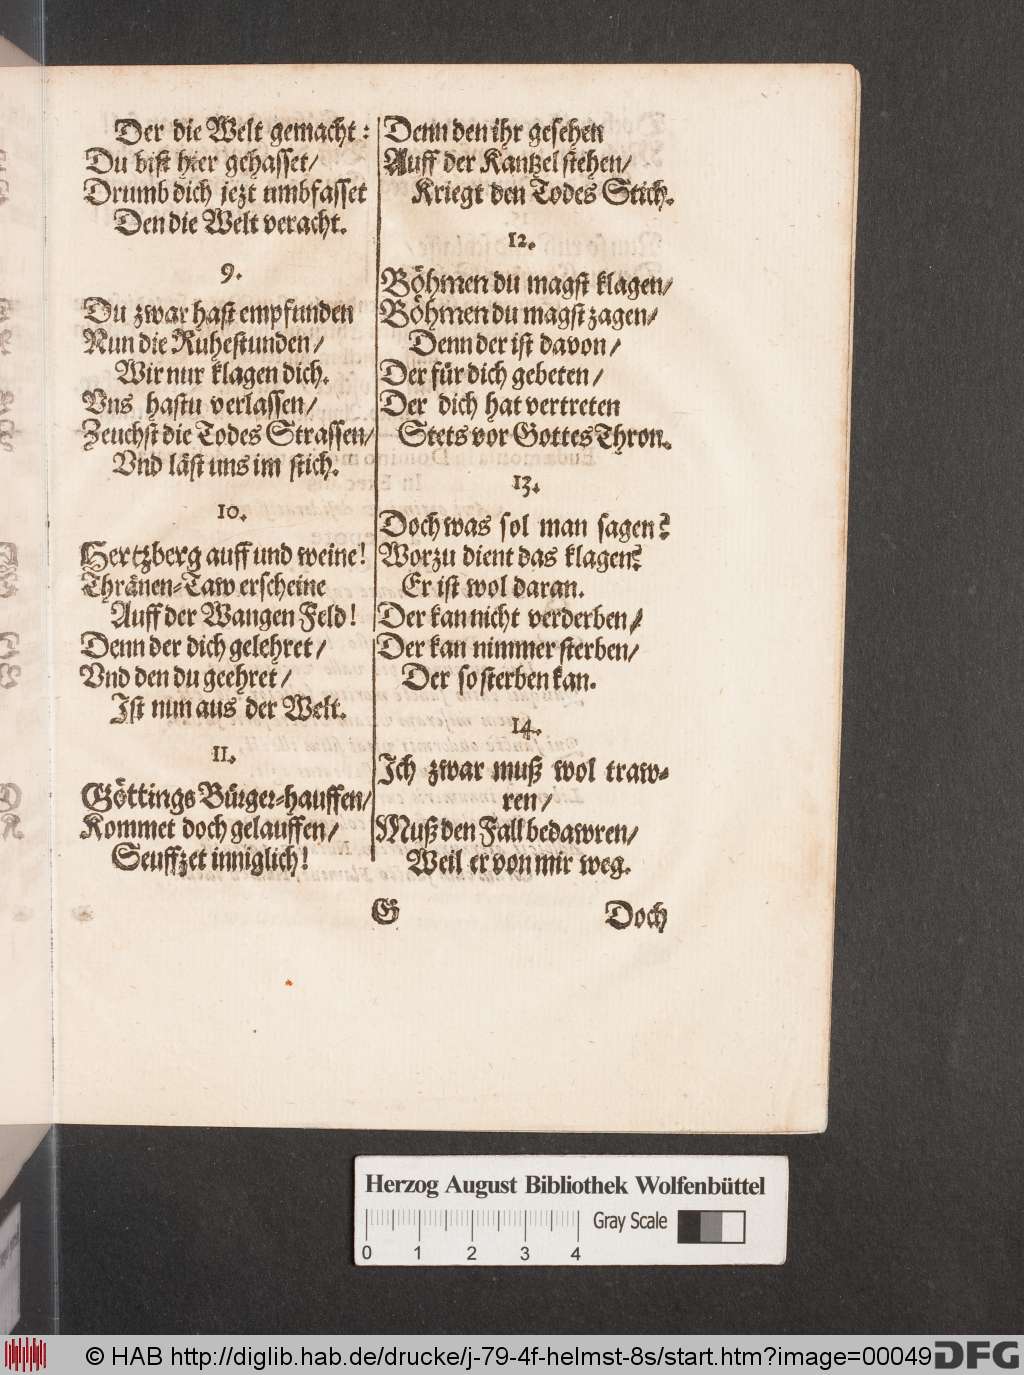 Der die Welt gemacht:
Du bist hier gehasset/
Drumb dich jezt umbfasset
Den die Welt veracht.
9.
Du zwar hast empfunden
Nun die Ruhestunden/
Wir nur klagen dich.
Vns hastu verlassen/
Zeuchst die Todes Strassen/
Vnd läst uns im stich.
10.
Hertzberg auff und weine!
Thränen-Taw erscheine
Auff der Wangen Feld!
Denn der dich gelehret/
Vnd den du geehret/
Ist nun aus der Welt.
11.
Göttings Bürger-hauffen/
Kommet doch gelauffen/
Seuffzet inniglich!
Denn den ihr gesehen
Auff der Kantzel stehen/
Kriegt den Todes Stich.
12.
Böhmen du magst klagen/
Böhmen du magst zagen/
Denn der ist davon/
Der für dich gebeten/
Der dich hat vertreten
Stets vor Gottes Thron.
13.
Doch was sol man sagen?
Worzu dient das klagen?
Er ist wol daran.
Der kan nicht verderben/
Der kan nimmer sterben/
Der so sterben kan.
14.
Ich zwar muß wol traw-
ren/
Muß den Fall bedawren/
Weil er von mir weg.
G
Doch
Herzog August Bibliothek Wolfenbüttel
Gray Scale
0 1 2 3 4
© HAB http://diglib.hab.de/drucke/j-79-4f-helmst-8s/start.htm?image=00049
DFG